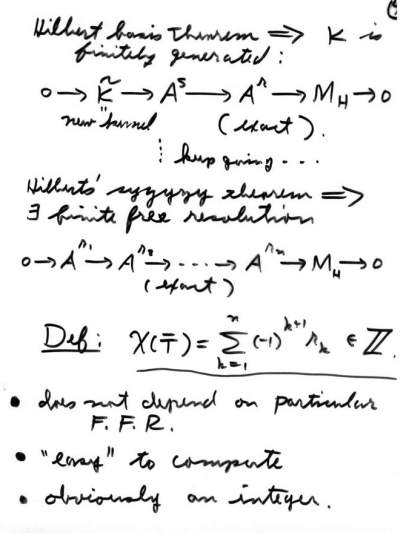 Hilbert basis theorem ⟹ K is
finitely generated:
0 → K̃ → A^s → A^r → M_H → 0
new kernel (exact).
⋮ keep going - - -
Hilberts' syzygy theorem ⟹
∃ finite free resolution
0 → A^{r_1} → A^{r_2} → ····→ A^{r_n} → M_H → 0
(exact)
Def: χ(T̄) = Σ_{k=1}^{n} (-1)^{k+1} r_k ∈ ℤ.
• does not depend on particular
F.F.R.
• "easy" to compute
• obviously an integer.